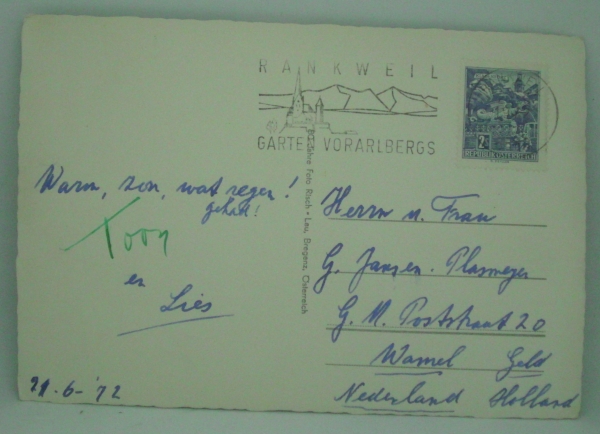 RANKWEIL
GARTEN VORARLBERGS
2S
REPUBLIK ÖSTERREICH
Warm, zon, wat regen!
gehad!
Toon
en
Lies
21-6-'72
Jahre Foto Risch-Lau, Bregenz, Österreich
Herrn u. Frau
G. Jansen-Plasmeyer
G. M. Poststraat 20
Wamel Geld
Nederland Holland